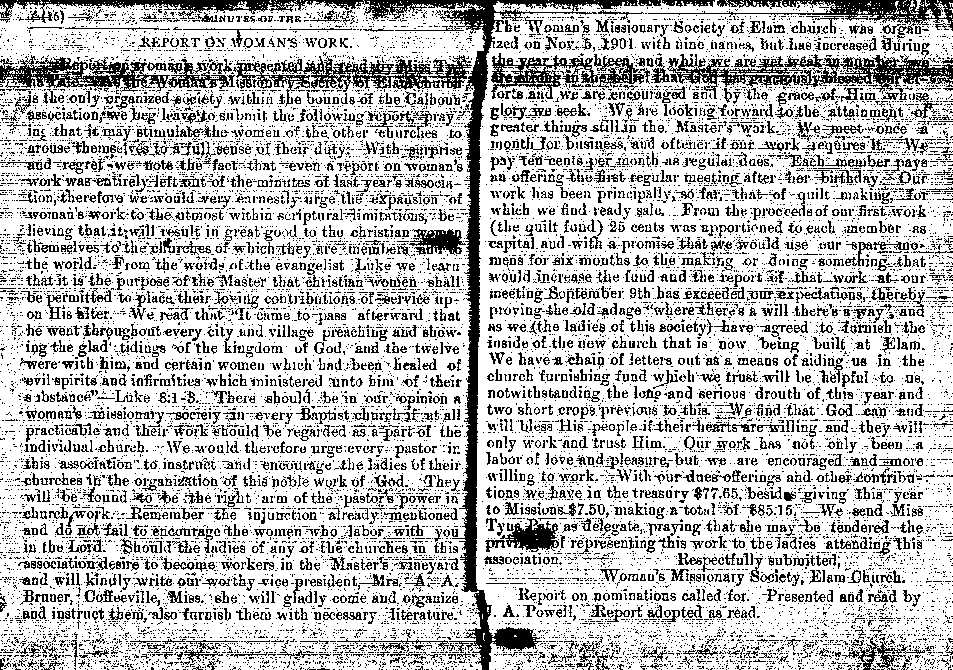 (16) MINUTES OF THE
REPORT ON WOMAN'S WORK.
Report on woman's work presented and read by Miss Tyne
Pate. As the Woman's Missionary Society of Elam church
is the only organized society within the bounds of the Calhoun
association, we beg leave to submit the following report, pray-
ing that it may stimulate the women of the other churches to
arouse themselves to a full sense of their duty. With surprise
and regret we note the fact that even a report on woman's
work was entirely left out of the minutes of last year's associa-
tion, therefore we would very earnestly urge the expansion of
woman's work to the utmost within scriptural limitations, be-
lieving that it will result in great good to the christian women
themselves to the churches of which they are members and to
the world. From the words of the evangelist Luke we learn
that it is the purpose of the Master that christian women shall
be permitted to place their loving contributions of service up-
on His alter. We read that "It came to pass afterward that
he went throughout every city and village preaching and show-
ing the glad tidings of the kingdom of God, and the twelve
were with him, and certain women which had been healed of
evil spirits and infirmities which ministered unto him of their
substance"—Luke 8:1-3. There should be in our opinion a
woman's missionary society in every Baptist church if at all
practicable and their work should be regarded as a part of the
individual church. We would therefore urge every pastor in
this association to instruct and encourage the ladies of their
churches in the organization of this noble work of God. They
will be found to be the right arm of the pastor's power in
church work. Remember the injunction already mentioned
and do not fail to encourage the women who labor with you
in the Lord. Should the ladies of any of the churches in this
association desire to become workers in the Master's vineyard
and will kindly write our worthy vice-president, Mrs. A. A.
Bruner, Coffeeville, Miss. she will gladly come and organize
and instruct them, also furnish them with necessary literature.
The Woman's Missionary Society of Elam church was organ-
ized on Nov. 5, 1901 with nine names, but has increased during
the year to eighteen, and while we are yet weak in number we
are strong in the belief that God has graciously blessed our ef-
forts and we are encouraged and by the grace of Him whose
glory we seek. We are looking forward to the attainment of
greater things still in the Master's work. We meet once a
month for business, and oftener if our work requires it. We
pay ten cents per month as regular dues. Each member pays
an offering the first regular meeting after her birthday. Our
work has been principally, so far, that of quilt making, for
which we find ready sale. From the proceeds of our first work
(the quilt fund) 25 cents was apportioned to each member as
capital and with a promise that we would use our spare mo-
mens for six months to the making or doing something that
would increase the fund and the report of that work at our
meeting September 9th has exceeded our expectations, thereby
proving the old adage "where there's a will there's a way", and
as we (the ladies of this society) have agreed to furnish the
inside of the new church that is now being built at Elam.
We have a chain of letters out as a means of aiding us in the
church furnishing fund which we trust will be helpful to us,
notwithstanding the long and serious drouth of this year and
two short crops previous to this. We find that God can and
will bless His people if their hearts are willing and they will
only work and trust Him. Our work has not only been a
labor of love and pleasure, but we are encouraged and more
willing to work. With our dues offerings and other contribu-
tions we have in the treasury $77.65, beside giving this year
to Missions $7.50, making a total of $85.15. We send Miss
Tyne Pate as delegate, praying that she may be tendered the
of representing this work to the ladies attending this
association. Respectfully submitted,
Woman's Missionary Society, Elam Church.
Report on nominations called for. Presented and read by
J. A. Powell, Report adopted as read.